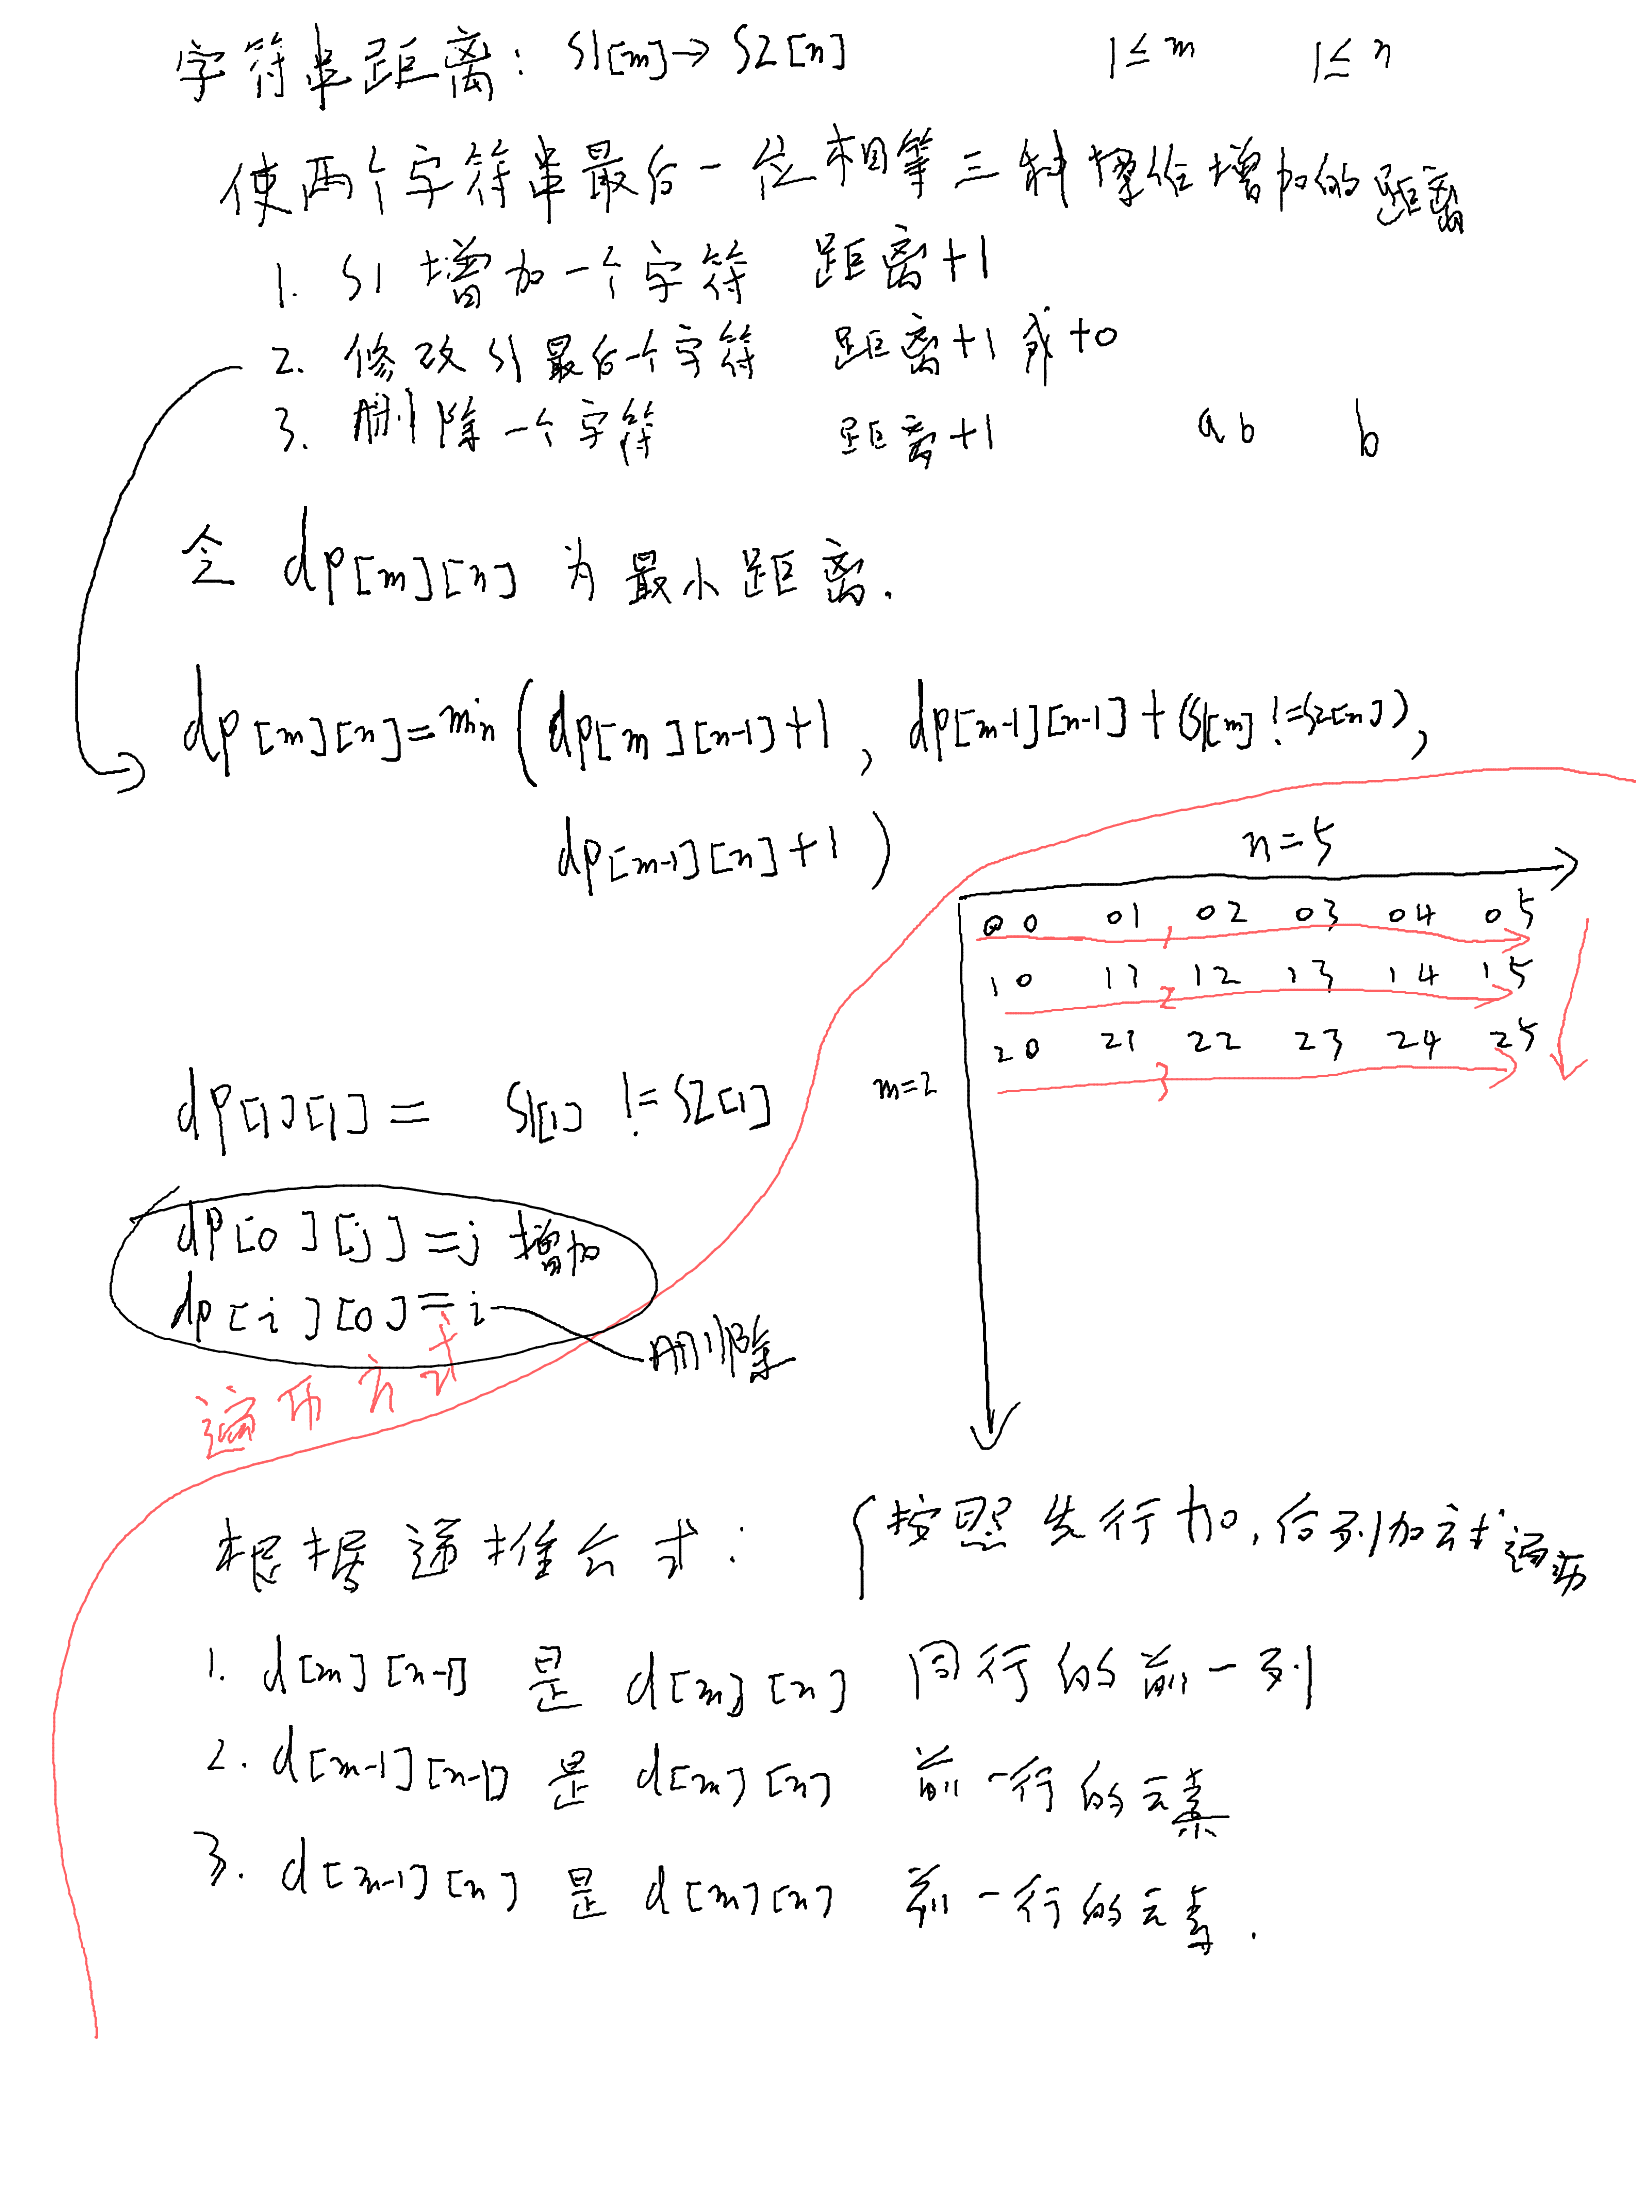 字符串距离: S1[m]→S2[n] 1≤m 1≤n
使两个字符串最后一位相等三种操作增加的距离
1. S1增加一个字符 距离+1
2. 修改S1最后一个字符 距离+1或+0
3. 删除一个字符 距离+1 ab b
令 dp[m][n] 为最小距离.
dp[m][n]=min(dp[m][n-1]+1, dp[m-1][n-1]+(S1[m]!=S2[n]),
dp[m-1][n]+1)
n=5
00 01 02 03 04 05
1
10 11 12 13 14 15
2
20 21 22 23 24 25
3
m=2
dp[1][1]= S1[1]!=S2[1]
dp[0][j]=j 增加
dp[i][0]=i 删除
遍历方式
根据递推公式: {按照先行加,后列加方式遍历
1. d[m][n-1] 是 d[m][n] 同行的前一列
2. d[m-1][n-1] 是 d[m][n] 前一行的元素
3. d[m-1][n] 是 d[m][n] 前一行的元素.